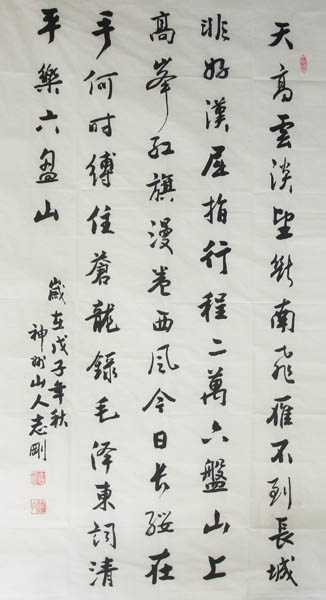 天高雲淡望断南飛雁不到長城
非好漢屈指行程二萬六盤山上
高峯紅旗漫卷西風今日長纓在
手何时縛住蒼龍錄毛泽東詞清
平樂六盘山
歲在戊子年秋
神州山人志剛